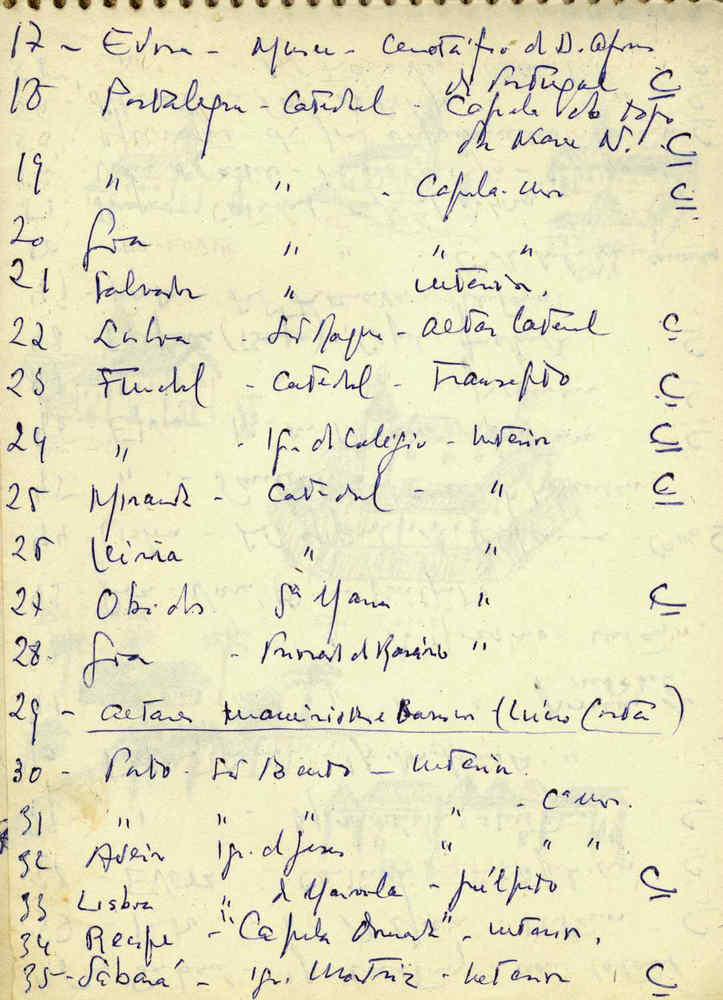 17 - Evora - Museu - Cenotáfio d D. Afons
d Portugal C
18 Portalegre - Catedral - Capela do topo
da nave N. C
19 " " - Capela-mor C
20 Goa " " " "
21 Salvador " interior.
22 Lisboa - São Roque - altar lateral C
23 Funchal - Catedral - Transepto C
24 " - Igr. d Colégio - Interior C
25 Miranda - Catedral - " C
26 Leiria " "
27 Obidos Sta Maria " C
28 - Goa - d Rosário "
29 - altares maneirista e Barroco (Lúcio Costa)
30 - Porto - São Bento - Interior.
31 " " " " - Ca mor.
32 Aveiro Igr. d Jesus " " "
33 Lisboa " d - púlpito C
34 Recife - "Capela Dourada" - interior.
35 - Sabará - Igr. Matriz - Interior C